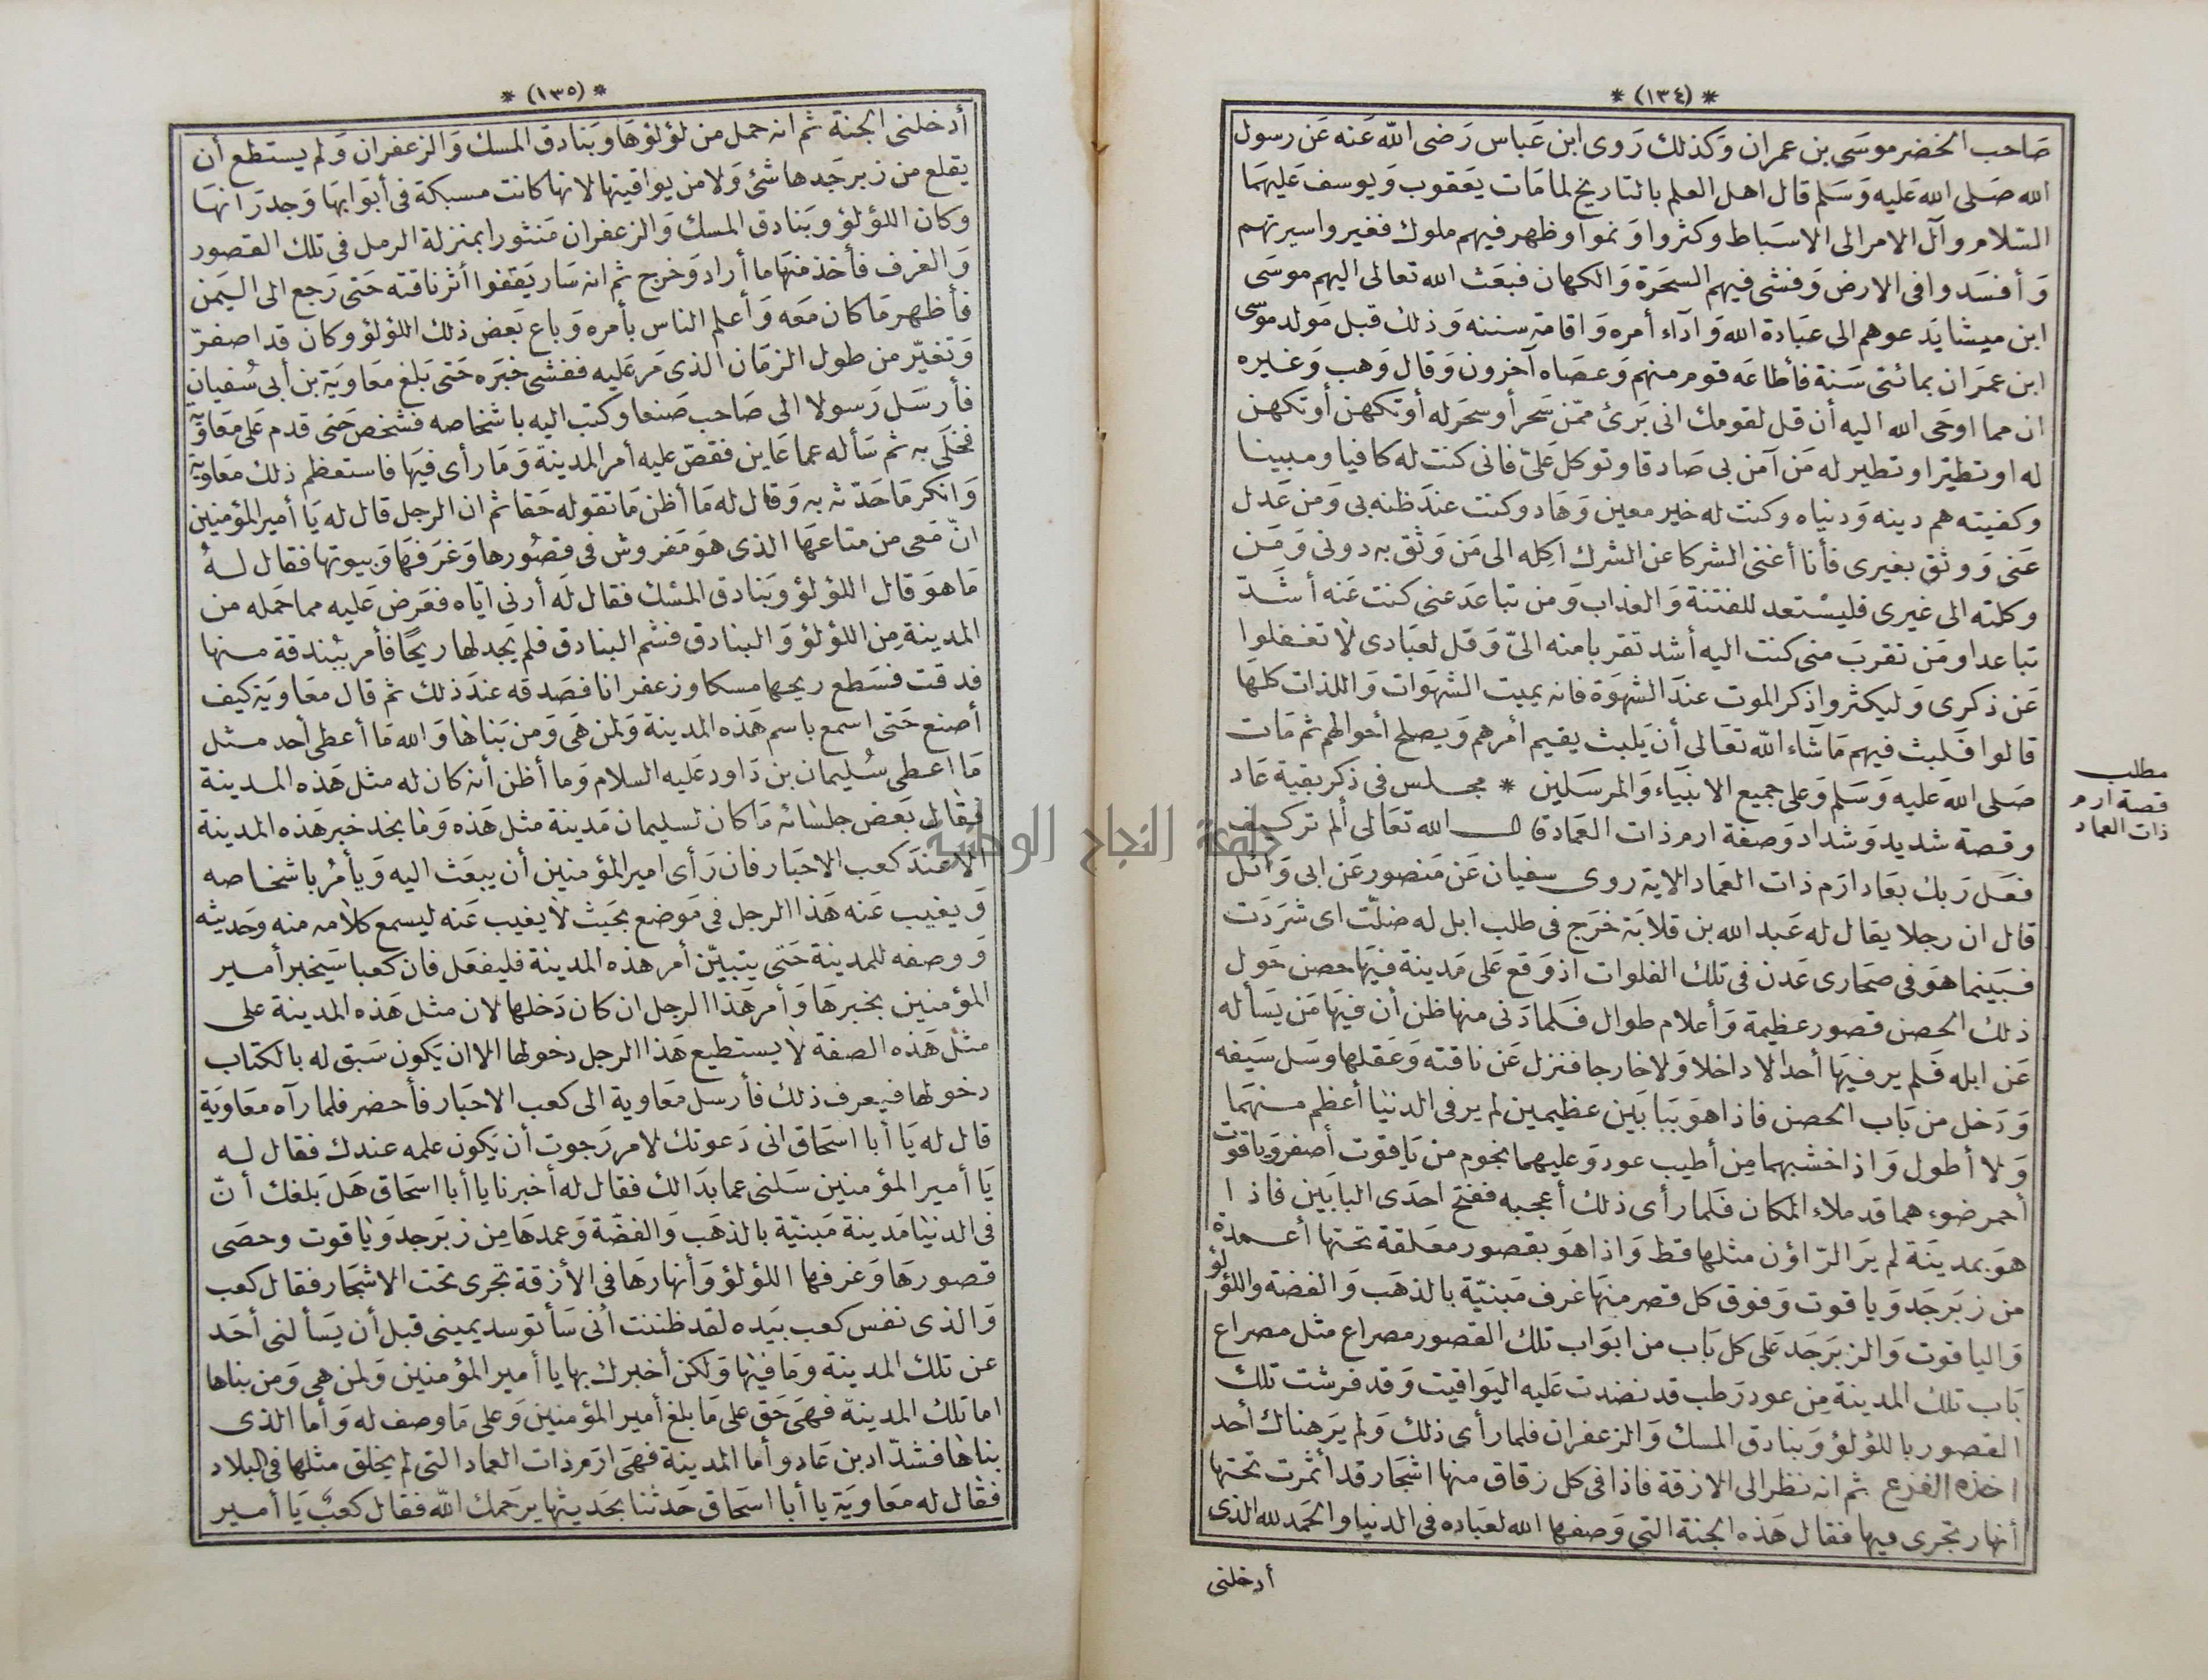 * (١٣٤) *
صَاحب الخضر موسَى بن عمران وَكذلك رَوى ابن عَباس رَضى الله عَنه عَن رسول
الله صَلى الله عَليه وَسَلم قال اهل العلم بالتاريخ لما مَات يَعَقوب وَيوسف عَليهمَا
السَلام وآل الامر الى الاسبَاط وكثروا وَنموا وظهر فيهم ملوك فغيروا سيرتهم
وَأفسَدوا فى الارض وَفشى فيهم السحَرَة وَالكهان فبعَث الله تعالى اليهم موسَى
ابن ميشا يَدعوهم الى عبَادة الله وَادَاء أمره وَاقامة سننه وَذلك قبل مَولد موسى
ابن عمرَان بمائتى سَنة فأطاعَه قوم منهم وَعصَاه آخرون وَقال وَهب وَغيره
ان مما اوحَى الله اليه أن قل لقومك انى بَرئ ممّن سَحر أو سحَر له أو تكهن أو تكهن
له او تطيّر او تطير له مَن آمن بى صَادقا وتوكل عَلىّ فانى كنت له كافيا ومبينا
وكفيته هم دينه وَدنياه وكنت له خير معين وَهَاد وكنت عندَ ظنه بى وَمن عَدل
عَنى وَوثق بغيرى فأنا أغنى الشركا عن الشرك اكِله الى مَن وَثق به دونى وَمَن
وكلته الى غيرى فليسْتعد للفتنة وَالعذاب وَمن تباعدَ عنى كنت عَنه أشدّ
تباعدا ومَن تقربَ منى كنت اليه أشد تقربا منه الىّ وَقل لعبَادى لا تغفلوا
عَن ذكرى وَليكثروا ذكر الموت عندَ الشهوَة فانه يميت الشهَوات وَاللذات كلهَا
قالوا فَلبث فيهم مَا شاء الله تعَالى أن يَلبث يقيم أمرهم وَيصلح أحوالهم ثم مَات
صَلى الله عَليه وَسَلم وَعلى جميع الانبيَاء وَالمرسَلين * مجلس فى ذكر بقية عَاد
وقصة شديد وَشداد وَصفة ارم ذات العمَاد قال الله تعَالى ألم تر كيف
فعَل رَبك بعَاد ارَم ذات العمَاد الاية روى سفيان عَن مَنصور عَن ابى وَائل
قال ان رجلا يقال له عَبد الله بن قلابَة خرَج فى طلب ابل له ضلّت اى شرَدَت
فبَينما هوَ فى صحَارى عَدن فى تلك الفلوات اذ وَقع عَلى مَدينة فيهَا حصن حَول
ذلك الحصن قصور عظيمة وَأعلام طوال فلما دَنى منها ظن أن فيهَا مَن يَسأله
عَن ابله فلم ير فيهَا أحدا لا داخلا وَلا خارجا فنزل عَن ناقته وَعَقلها وسَل سَيفه
وَدَخل من بَاب الحصن فاذا هوَ ببَابَين عظيمين لم ير فى الدنيا أعظم منهمَا
وَلا أطول وَاذا خشبهما مِن أطيب عود وَعليهما نجوم من يَاقوت أصفر وَياقوت
أحمر ضوءهما قد ملاء المكان فلما رأى ذلك أعجبه ففتح احدَى البابَين فاذا
هوَ بمدينَة لم يَر الرّاؤن مثلها قط وَاذا هوَ بقصور معَلقة تحتها أعمدة
من زبَرجَد وَياقوت وَفوق كل قصر منهَا غرف مَبنيّة بالذهَب وَالفضة واللؤلؤ
وَالياقوت وَالزبَرجَد عَلى كل بَاب من ابوَاب تلك القصور مصراع مثل مصراع
بَاب تلك المدينة مِن عود رَطب قد نضدت عَليه اليَواقيت وَقد فرشت تلك
القصور باللؤلؤ وَبنادق المسك وَالزعفران فلما رأى ذلك وَلم يَر هناك أحد
اخذه الفزع ثم انه نظر الى الازقة فاذا فى كل زقاق منها اشجَار قد أثمرت تحتها
أنهار تجرى فيها فقال هَذه الجنة التى وَصفها الله لعبَاده فى الدنيا والحَمد لله الذى
أدخلنى
مطلب
قصة ارم
ذات العماد
* (١٣٥) *
أدخلنى الجنة ثم انه حمل من لؤلؤهَا وبَنادق المسك وَالزعفران وَلم يستطع أن
يقلع من زبرجَدها شئ وَلا من يواقيتها لانها كانت مسبكة فى أبوَابهَا وَجدرَانهَا
وكان اللؤلؤ وبَنادق المسك وَالزعفران مَنثورا بمنزلة الرمل فى تلك القصور
وَالغرف فأخذ منهَا ما أراد وَخرج ثم انه سَار يَقفوا أثر ناقته حَتى رَجع الى اليَمن
فأظهر مَا كان مَعَه وَأعلم الناس بأمره وَباع بَعض ذلك اللؤلؤ وكان قد اصفرّ
وَتغيّر من طول الزمَان الذى مَر عَليه ففشى خبَره حَتى بَلغ معَاويَة بن أبى سُفيان
فأرسَل رَسولا الى صَاحب صَنعا وكتب اليه باشخاصه فشخص حَتى قدم عَلى معَاويَة
فخلَى به ثم سَأله عما عَاين فقصّ عليه أمر المدينة وَمَا رأى فيهَا فاستعظم ذلك معَاوية
وَانكر مَا حَدّثه به وَقال له مَا أظن مَا تقوله حَقا ثم ان الرجل قال له يَا أمير المؤمنين
انّ مَعى من متاعهَا الذى هوَ مَفروش فى قصُورها وَغرَفهَا وَبيوتها فقال لهُ
مَا هوَ قال اللؤلؤ وَبنادق المسْك فقال لَه أرنى ايّاه فعَرض عَليه مما حَمله من
المدينة مِن اللؤلؤ وَالبنادق فشم البنادق فلم يَجد لها ريحًا فأمر ببُندقة منها
فدقت فسَطع ريحها مسكا وزعفرانا فصَدقه عندَ ذلك ثم قال معَاويَة كيف
أصنع حَتى اسمع باسم هَذه المدينة وَلمن هَى وَمن بَناها وَالله مَا أعطى أحد مثل
مَا اعطى سُليمان بن دَاود عَليه السلام وَما أظن أنه كان له مثل هَذه المدينة
فقال بَعض جلسَائه مَا كان لسليمان مَدينة مثل هَذه وَما نجد خبر هَذه المدينة
الا عندَ كعب الاحبَار فان رَأى امير المؤمنين أن يبعَث اليه وَيأمُر باشخاصه
وَيغيب عَنه هَذا الرجل فى مَوضع بحَيث لا يغيب عَنه ليسمع كلامه منه وَحَديثه
وَوصفه للمدينة حَتى يتبيّن أمر هذه المدينة فليفعَل فان كعبا سَيخبر أمير
المؤمنين بخبرهَا وَأمر هَذا الرجل ان كان دَخلها لان مثل هَذه المدينة على
مثل هَذه الصفة لا يستطيع هَذا الرجل دخولها الا ان يَكون سَبق له بالكتاب
دخولها فيعرف ذلك فأرسل معَاوية الى كعب الاحبَار فأحضر فلما رآه معَاويَة
قال له يَا أبا اسحَاق انى دَعوتك لامر رَجوت أن يَكون علمه عندك فقال له
يَا أمير المؤمنين سَلنى عما بدَالك فقال له أخبرنا يا أبا اسحَاق هَل بَلغك أنّ
فى الدنيا مَدينة مَبنيّة بالذهَب وَالفضّة وَعمدهَا مِن زبَرجد وَياقوت وحصَى
قصورهَا وَغرفها اللؤلؤ وَأنهارهَا فى الأزقة تجرى تحت الاشجَار فقال كعب
وَالذى نفس كعب بيَده لقد ظننت أنى سَأتوسد يمينى قبل أن يَسألنى أحَد
عن تلك المدينة وَمَا فيهَا وَلكن أخبرك بها يا أمير المؤمنين وَلمن هى وَمن بناها
اما تلك المدينة فهى حَق على مَا بلغ أمير المؤمنين وَعلى مَا وصف له وَأما الذى
بناها فشدّاد بن عَاد وأما المدينة فهىَ ارَم ذات العماد التى لم يخلق مثلها فى البلاد
فقال له معَاويَة يا أبا اسحَاق حَدثنا بحَديثها يرحَمك الله فقال كعبُ يَا أمير
النجاح الوطنية